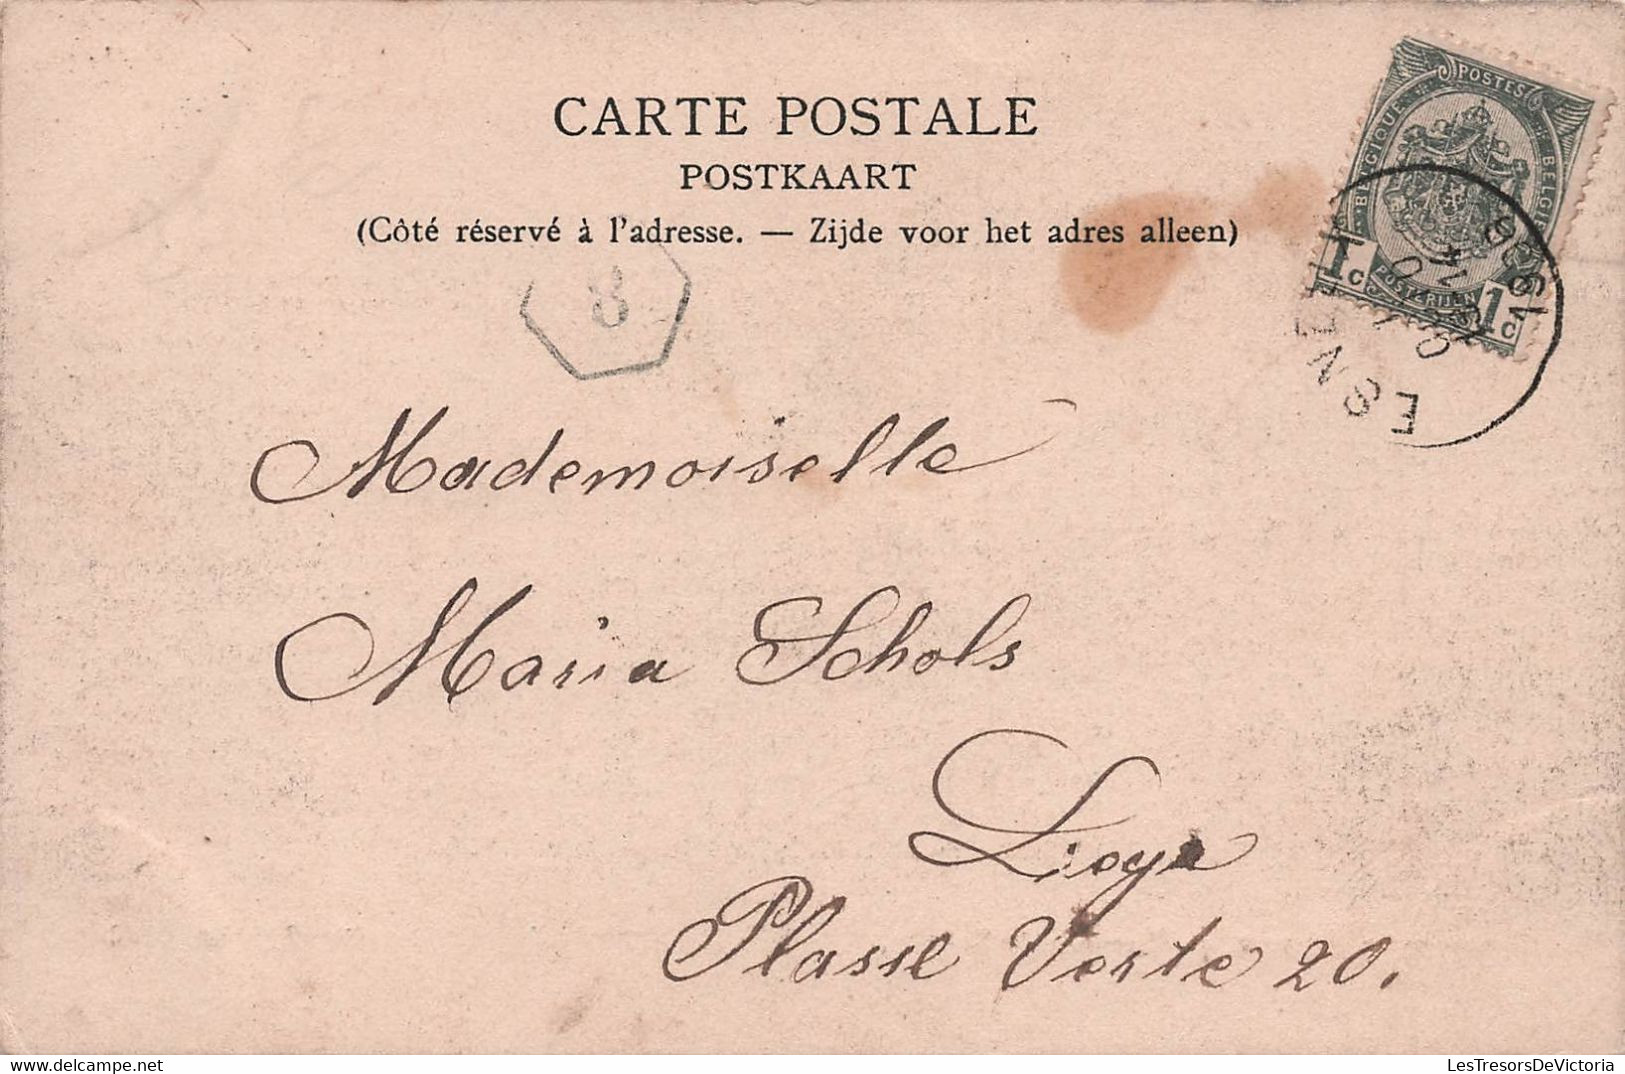 CARTE POSTALE
POSTKAART
(Côté réservé à l'adresse. — Zijde voor het adres alleen)
POSTES
BELGIQUE
BELGIË
POSTERIJEN
1c 1c
8
Mademoiselle
Maria Schols
Liege
Plasse Verte 20.
LesTresorsDeVictoria
www.delcampe.net